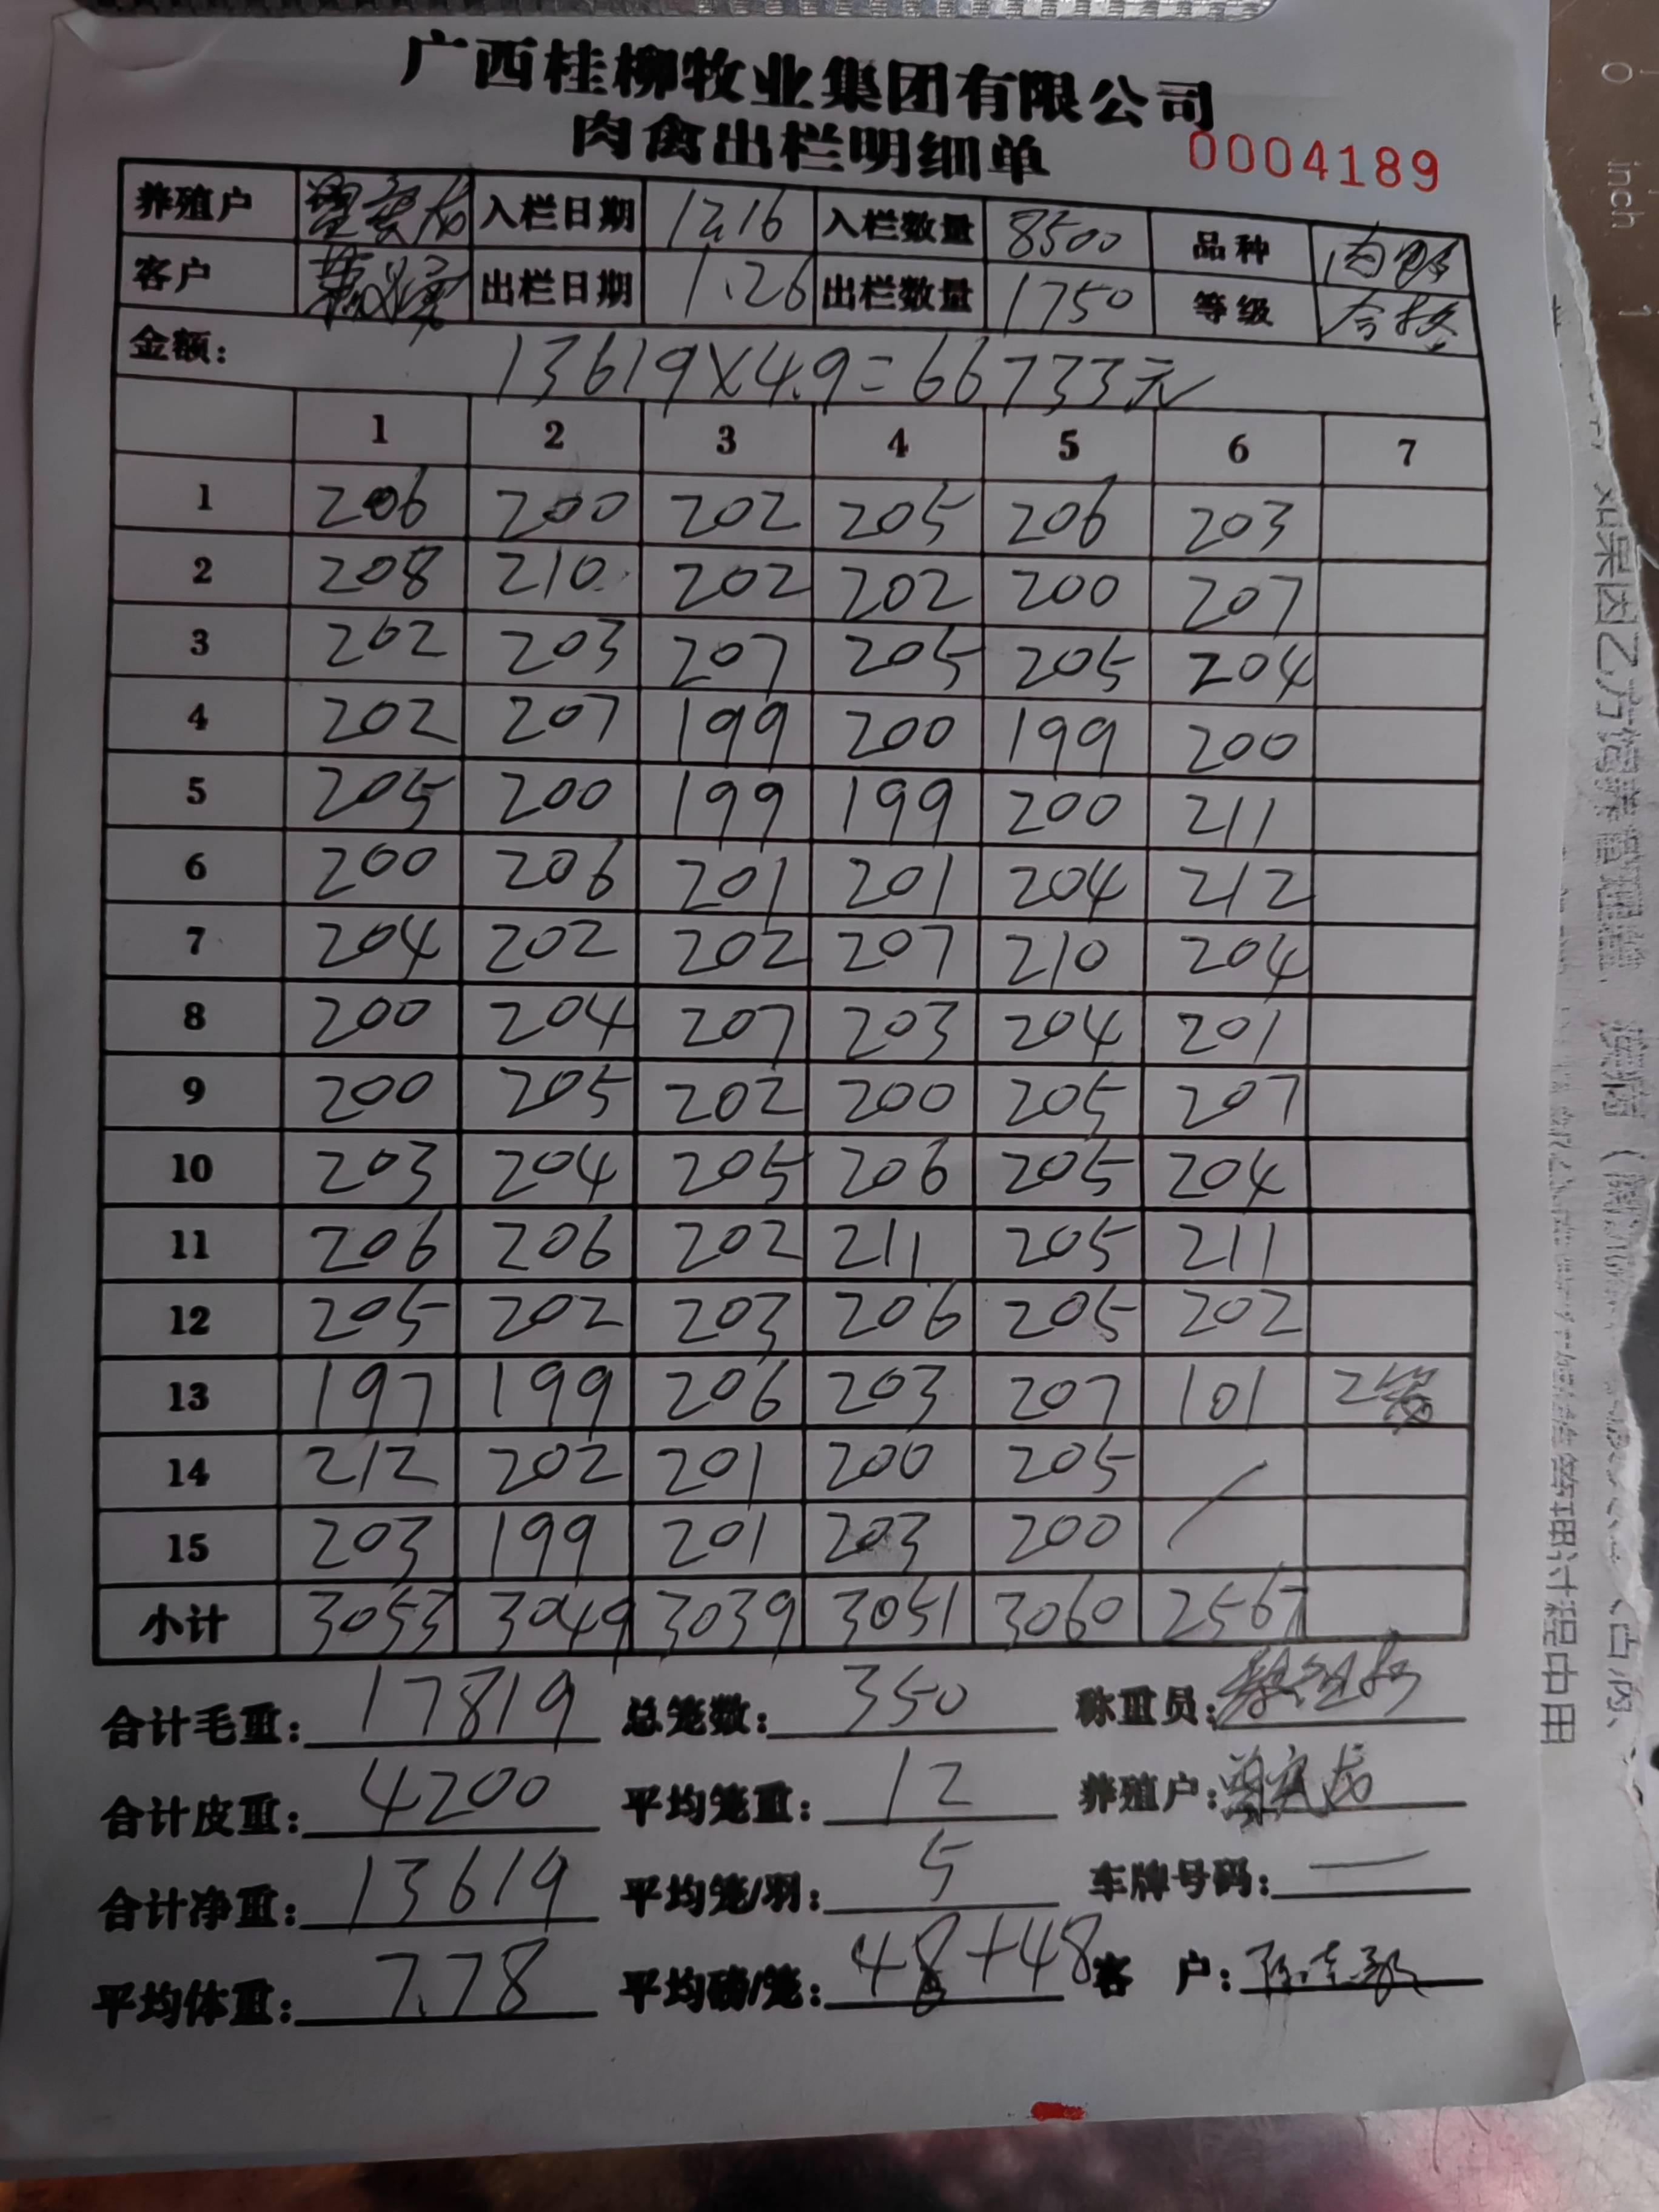 广西桂柳牧业集团有限公司
肉禽出栏明细单 0004189
养殖户 入栏日期 12.16 入栏数量 8500 品种 肉鸭
客户 出栏日期 1.26 出栏数量 1750 等级 合格
金额: 13619×4.9=66733元
1 2 3 4 5 6 7
1 206 200 202 205 206 203
2 208 210 202 202 200 207
3 202 203 207 205 205 204
4 202 207 199 200 199 200
5 205 200 199 199 200 211
6 200 206 201 201 204 212
7 204 202 202 207 210 204
8 200 204 207 203 204 201
9 200 205 202 200 205 207
10 203 204 205 206 205 204
11 206 206 202 211 205 211
12 205 202 203 206 205 202
13 197 199 206 203 207 101 2笼
14 212 202 201 200 205
15 203 199 201 203 200
小计 3053 3049 3039 3051 3060 2567
合计毛重: 17819 总笼数: 350 称重员:
合计皮重: 4200 平均笼重: 12 养殖户:
合计净重: 13619 平均笼/羽: 5 车牌号码: —
平均体重: 7.78 平均磅/笼: 48+48 客 户:
0 inch 1
如果因乙方饲养管理